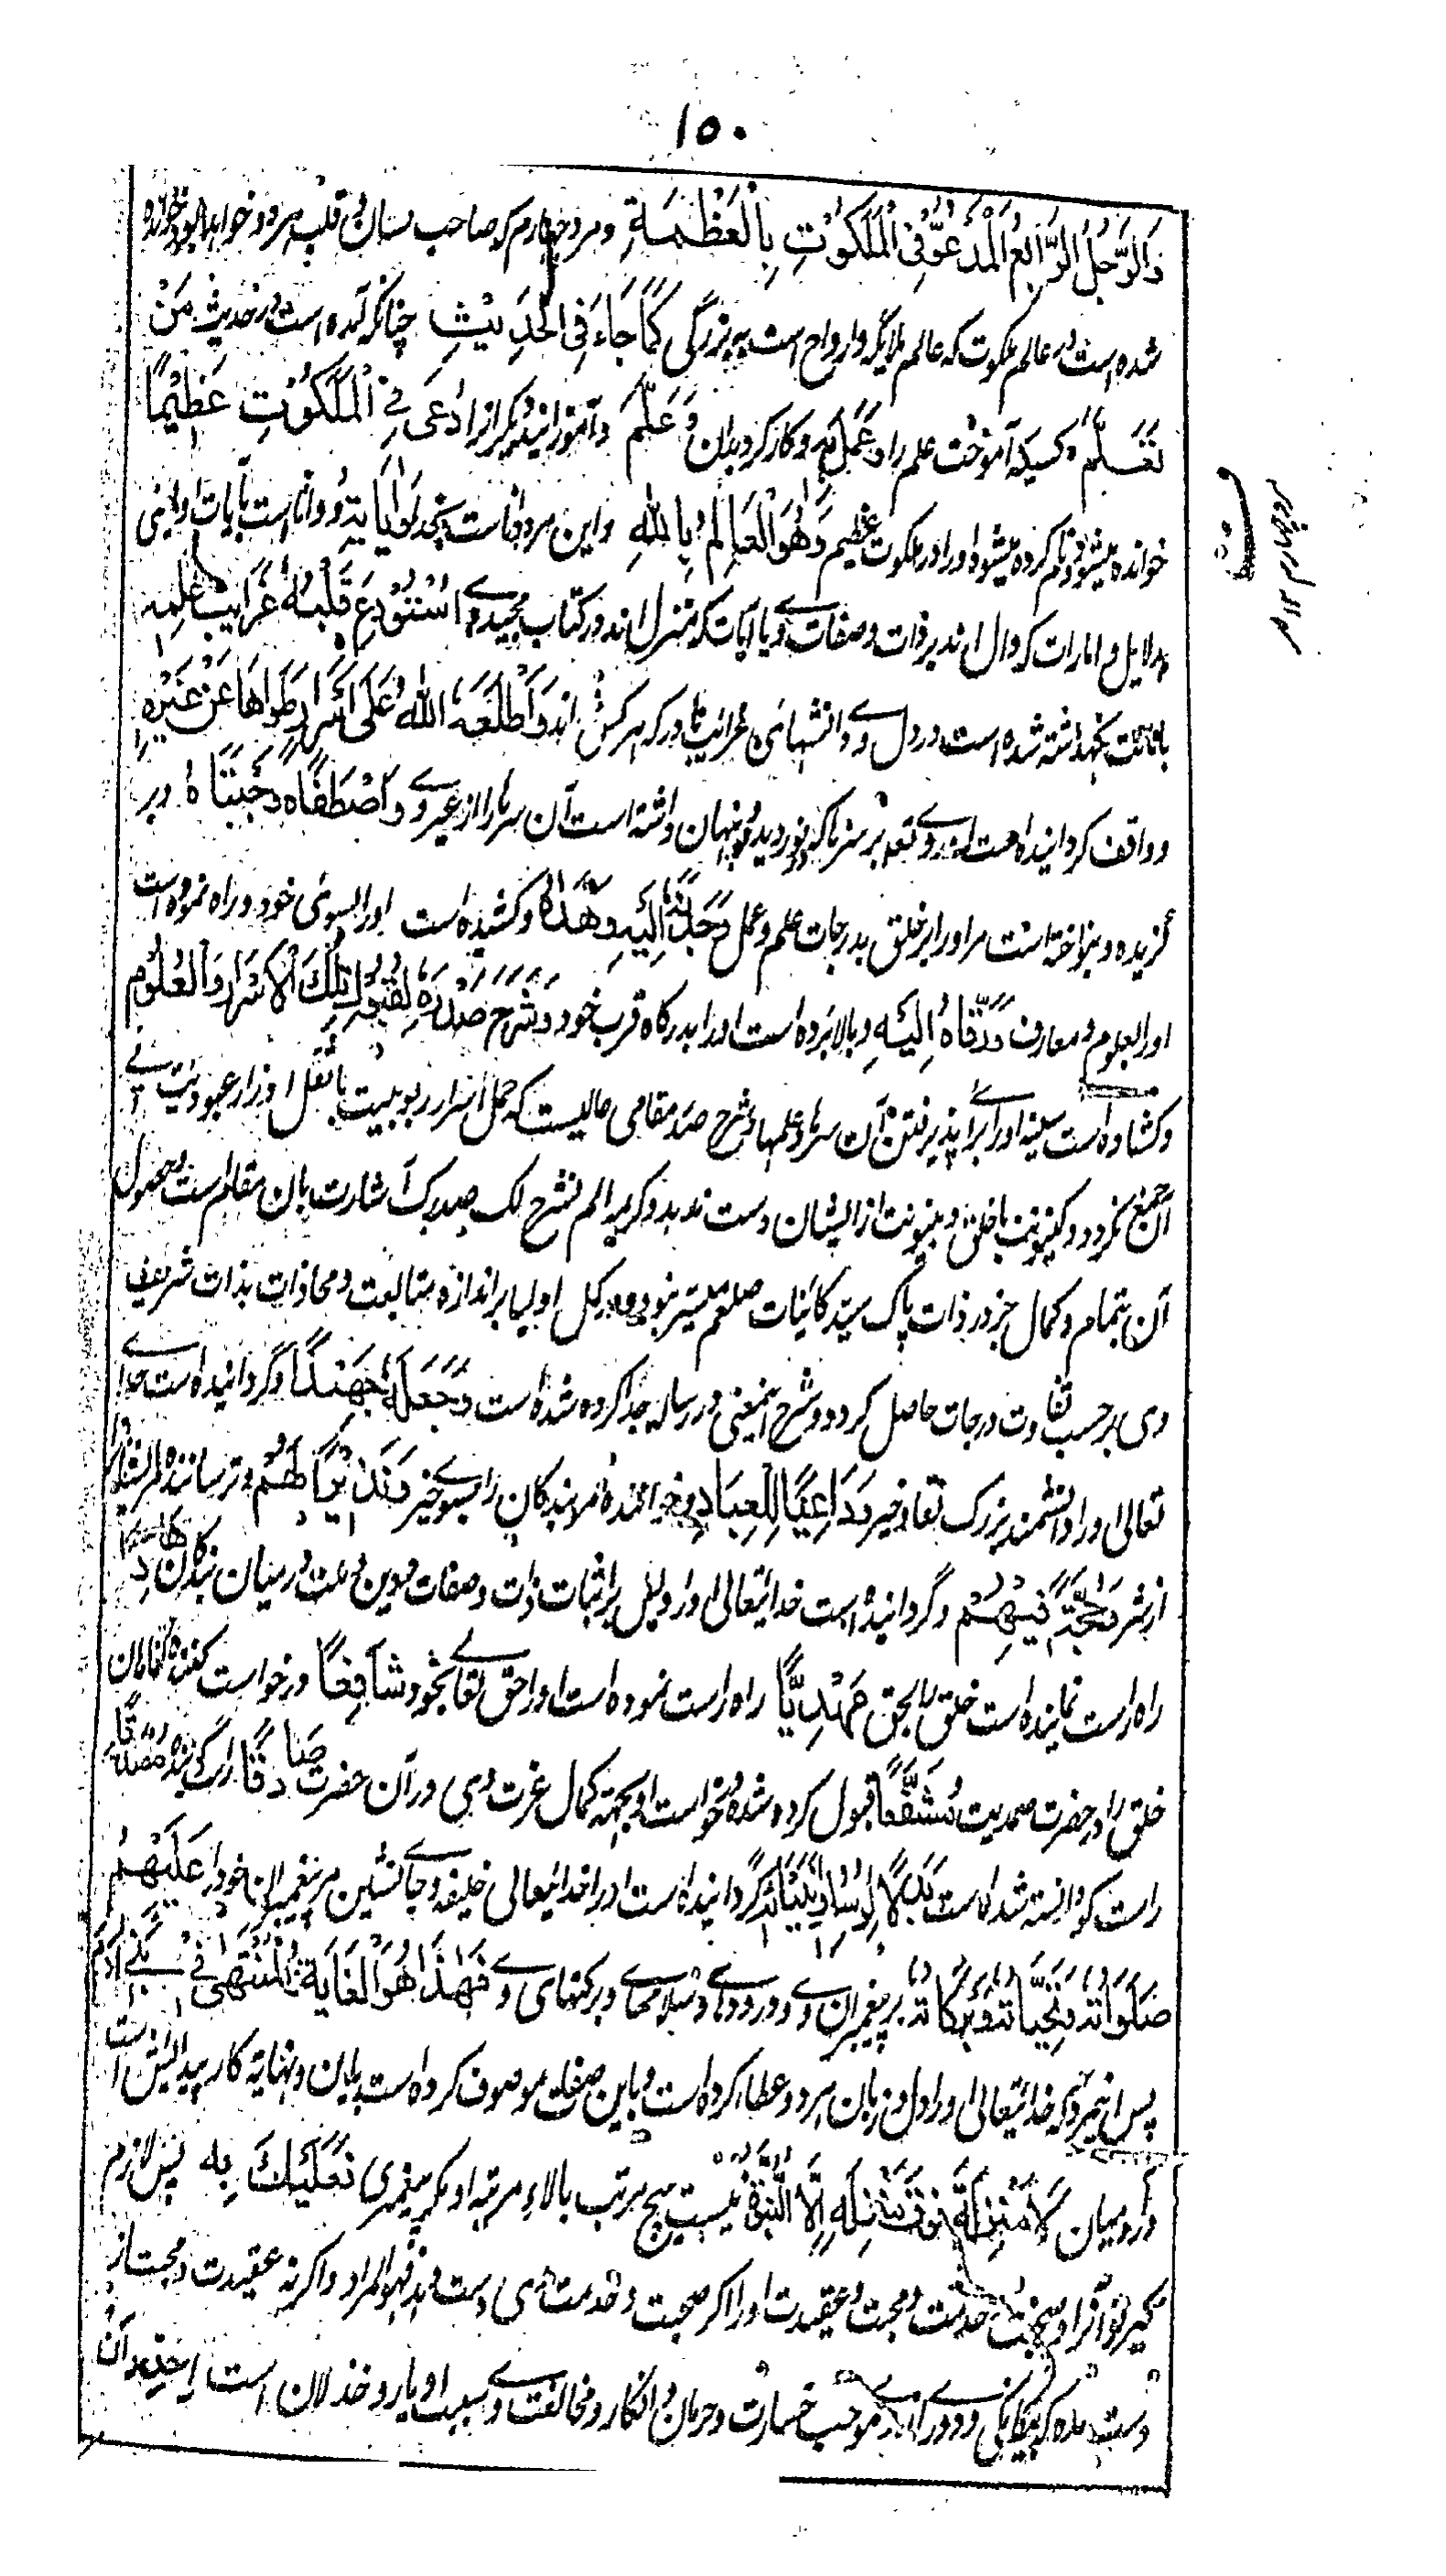 ۱۵۰
وَالرَّجُلُ الرَّابِعُ الْمَدْعُوُّ فِي الْمَلَكُوْتِ بِالْعَظَمَةِ ومرد چهارم که صاحب لسان و قلب هر دو خواهد بود خوانده
شده است در عالم ملکوت که عالم ملایکه وارواح است به بزرگی كَمَا جَاءَ فِي الْحَدِيْثِ چنانکه آمده است در حدیث مَنْ
تَعَلَّمَ کسیکه آموخت علم را وَعَمِلَ بِهِ وکار کرد بدان وَعَلَّمَ وآموزانید دیگرانرا دُعِيَ فِي الْمَلَكُوْتِ عَظِيْمًا
خوانده میشود ونام کرده میشود اورا در ملکوت عظیم وَهُوَ الْعَالِمُ بِاللهِ واین مرد دانا است بخدا وَاٰيَاتِهٖ و دانا است بآیات او یعنی
دلایل و امارات که دال اند بر ذات وصفات وے ویا آیات که منزل اند در کتاب مجید وے اُسْتُوْدِعَ قَلْبُهٗ غَرَايِبَ عِلْمِهٖ
بامانت نگهداشته شده است در دل وے دانشهای غرایب نادر که هر کس اند وَاَطْلَعَهُ اللهُ عَلٰى اَسْرَارٍ طَوَاهَا عَنْ غَيْرِهٖ
وواقف گردانیده است اورا وے تعالی بر سرها که در نوردیده و پنهان داشته است آن سرها را از غیر وے وَاصْطَفَاهُ وَاجْتَبَاهُ و بر
گزیده و بنواخته است مر اورا از خلق بدرجات علم وعمل وَجَذَبَهٗ اِلَيْهِ وَهَدَاهُ وکشیده است اورا بسوی خود وراه نموده است
اورا بعلوم و معارف وَرَقَّاهُ اِلَيْهِ وبالا برده است اورا بدرگاه قرب خود وَشَرَحَ صَدْرَهٗ لِقَبُوْلِ تِلْكَ الْاَسْرَارِ وَالْعُلُوْمِ
وکشاده است سینه اورا برای پذیرفتن آن سرها وعلمها وشرح صدر مقامی عالیست که حمل اسرار ربوبیت با ثقل اوزار عبودیت بے
آن جمع نگردد وکینونت با خلق و بینونت از ایشان دست ندهد وکریمه الم نشرح لک صدرک اشارت بان مقام است وحصول
آن بتمام و کمال جز در ذات پاک سید کائنات صلعم میسر نبود و در کل اولیا بر اندازه متابعت ومحاذات بذات شریف
وی بر حسب تفاوت درجات حاصل گردد وشرح اینمعنی در رساله جدا کرده شده است وَجَعَلَهٗ جَهْبَذًا وگردانیده است خداے
تعالی اورا دانشمند بزرگ نقاد خیر وَدَاعِيًا لِلْعِبَادِ وخواننده مر بندگان را بسوے خیر وَنَذِيْرًا لَهُمْ وترساننده مر ایشانرا
از شر وَحُجَّةً فِيْهِمْ وگردانیده است خدایتعالی اورا دلیل بر اثبات ذات وصفات و دین وملت در میان بندگان هَادِيًا
راه راست نماینده است خلق را بحق مَهْدِيًّا راه راست نموده است اورا حق تعالے بخود شَافِعًا درخواست کننده گناهان
خلق را در حضرت صمدیت مُشَفَّعًا قبول کرده شده درخواست او بجهته کمال عزت وی در آن حضرت صَادِقًا راست گوینده مُصَدَّقًا
راست گو دانسته شده است بَدَلًا لِرُسُلِهٖ وَاَنْبِيَائِهٖ گردانیده است اورا خدایتعالی خلیفه وجانشین مر پیغمبران خود را عَلَيْهِمْ
صَلَوَاتُهٗ وَتَحِيَّاتُهٗ وَبَرَكَاتُهٗ بر پیغمبران وے درودهاے و سلامهاے وبرکتهای وے فَهٰذَا هُوَ الْغَايَةُ الْمُنْتَهٰى فِيْ بَنِيْ اٰدَمَ
پس اینمرد که خدایتعالی اورا دل و زبان هر دو عطا کرده است و باین صفات موصوف کرده است پایان ونهایة کار پیدایش است
در آدمیان لَا مَنْزِلَةَ فَوْقَ مَنْزِلَتِهٖ اِلَّا النُّبُوَّةُ نیست هیچ مرتبه بالاء مرتبه او مگر پیغمبری فَعَلَيْكَ بِهٖ پس لازم
گیر تو آنرا وصحبت و خدمت ومحبت وعقیدت اورا اگر صحبت وخدمت وی دست دهد فهو المراد واگر نه عقیدت ومحبت از
دست مده که بیگانگی ودوری از وے موجب خسارت وحرمان و انکار ومخالفت وے سبب ادبار وخذلان است اِحْذَرْ اَنْ
مرد چهارم